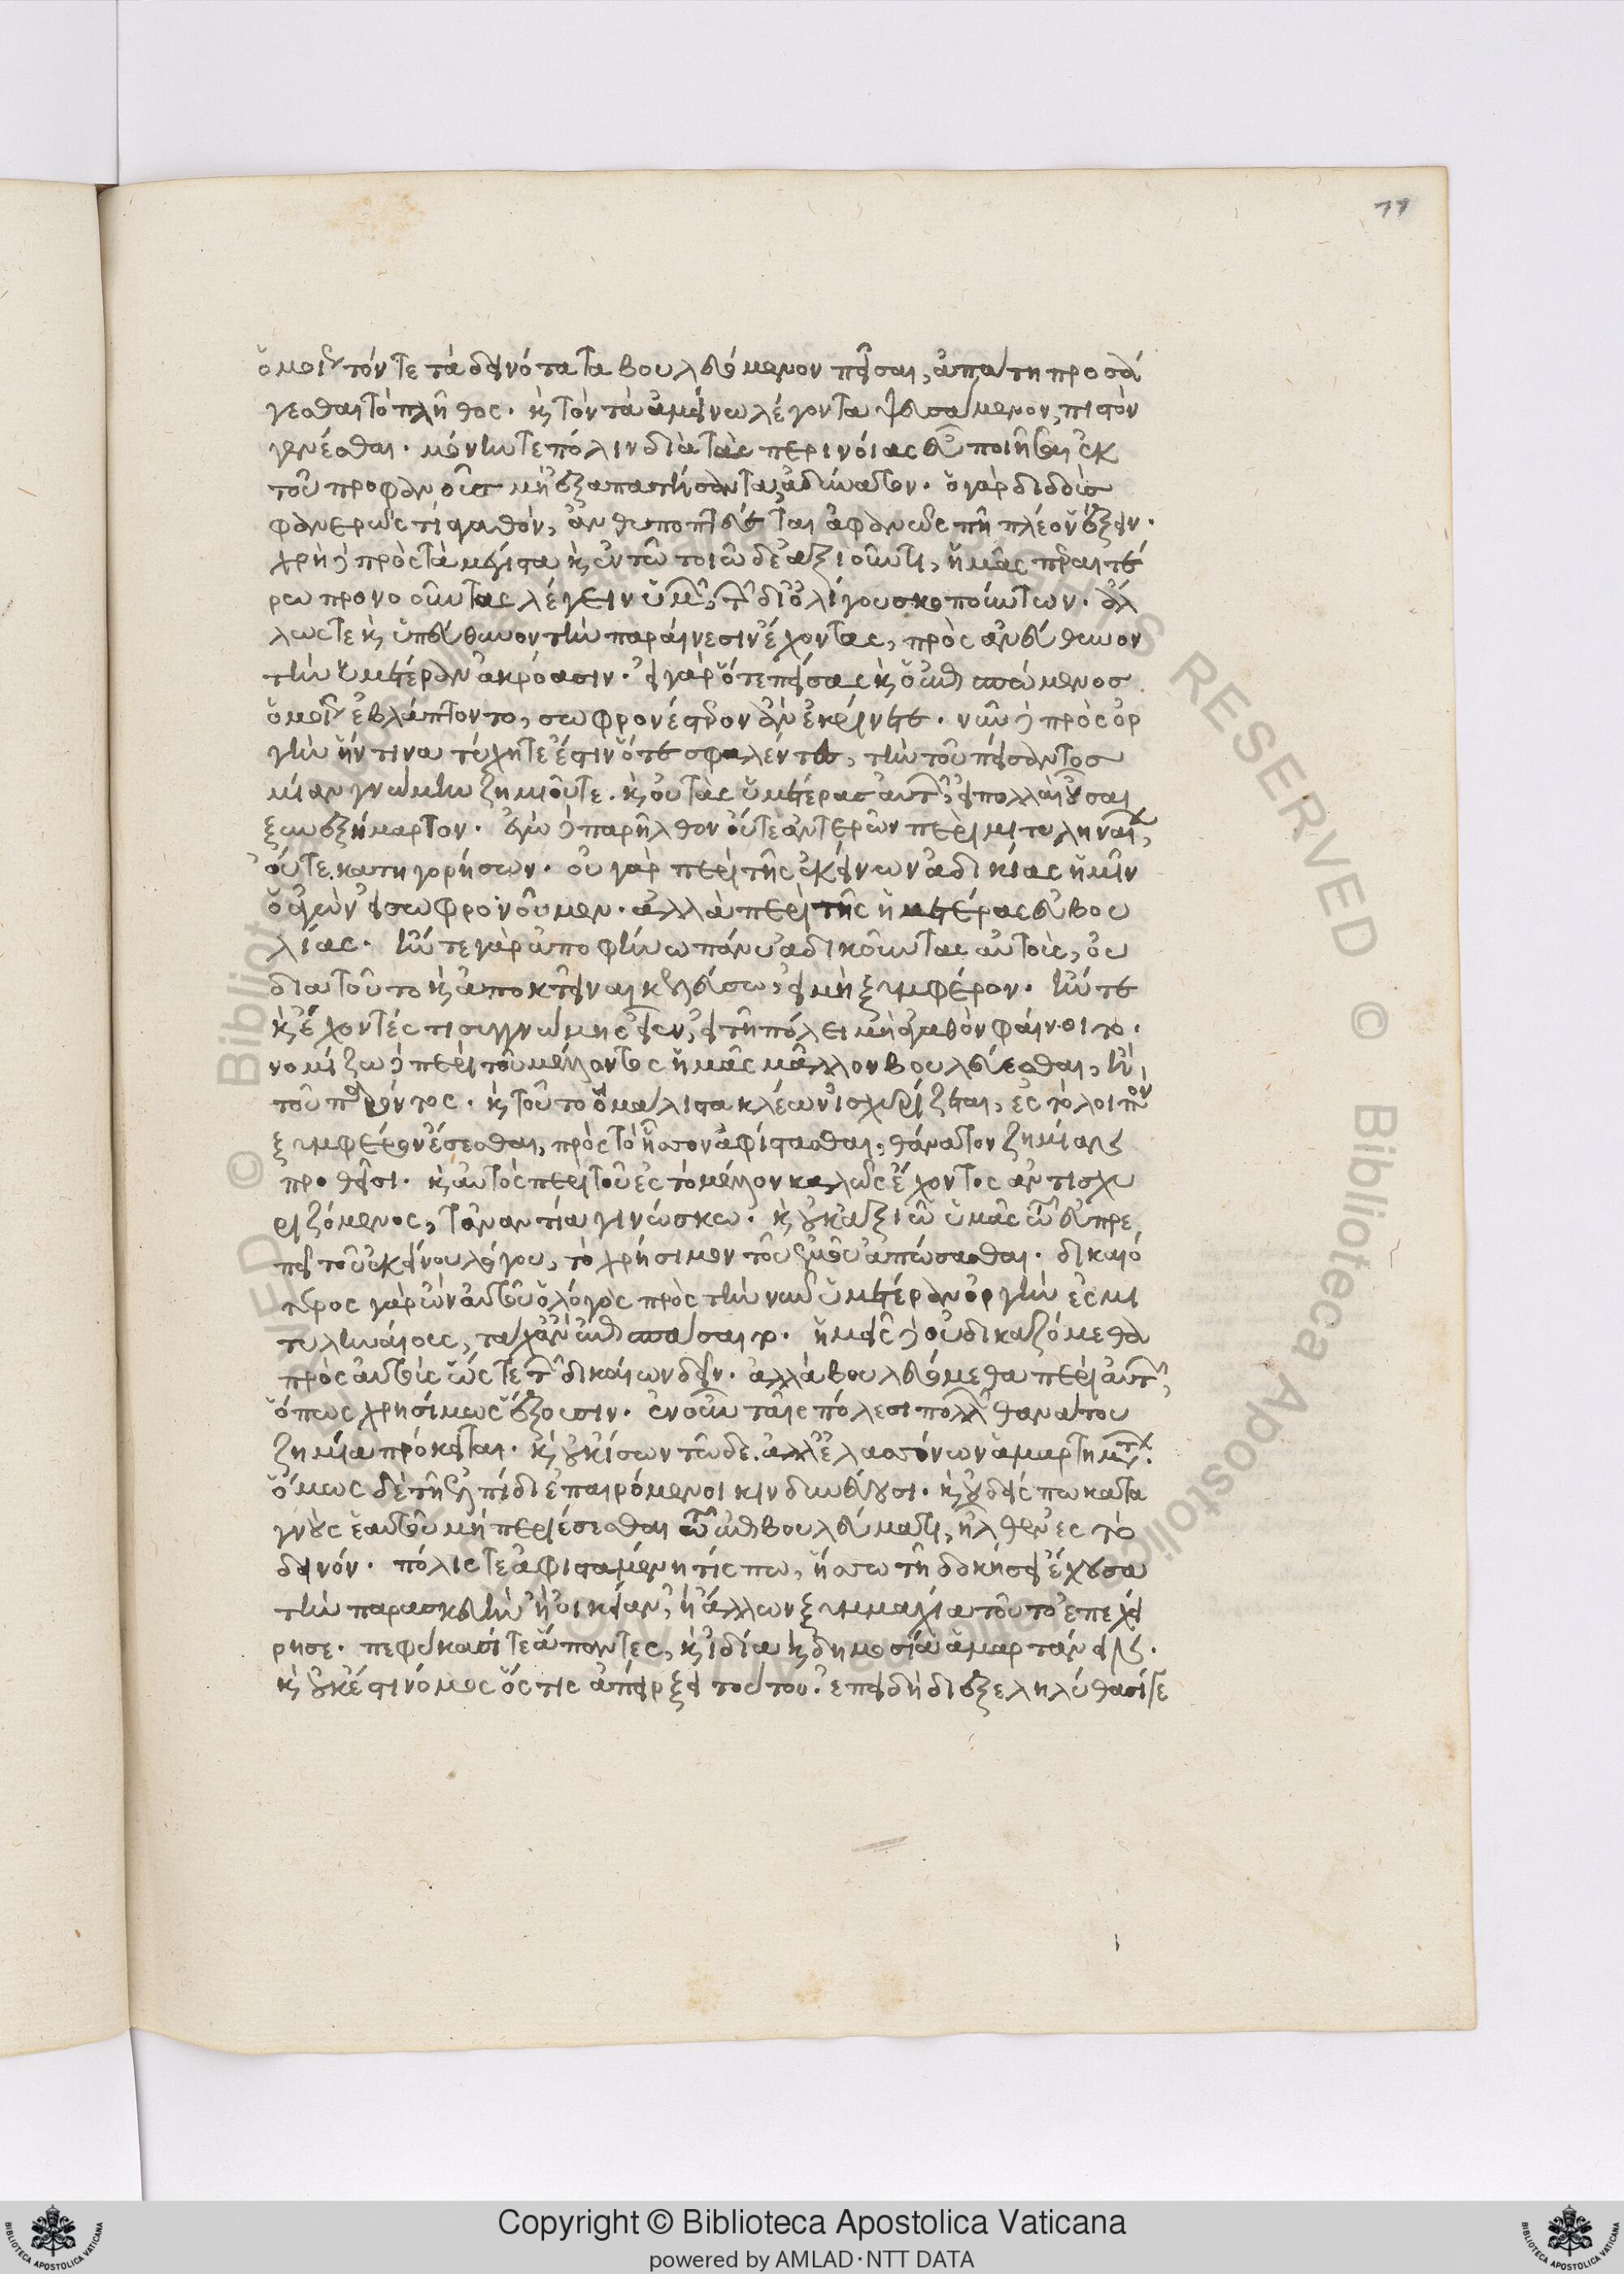 77
ὁμοίως τόν τε τὰ δεινότατα βουλόμενον πεῖσαι, ἀπάτη προσά
γεσθαι τὸ πλῆθος. καὶ τὸν τὰ ἀμείνω λέγοντα ψευσάμενον, πιστὸν
γενέσθαι. μόνην τε πόλιν διὰ τὰς περινοίας εὖ ποιῆσαι ἐκ
τοῦ προφανοῦς μὴ ἐξαπατήσαντα, ἀδύνατον. ὁ γὰρ διδοὺς
φανερῶς τι ἀγαθὸν, ἀνθυποπτεύεται ἀφανῶς πη πλέον ἕξειν.
χρὴ δὲ πρὸς τὰ μέγιστα καὶ ἐν τῶ τοιῶδε ἀξιοῦντι, ἡμᾶς περαιτέ
ρω προνοοῦντας λέγειν ὑμῶν, τῶν δι' ὀλίγου σκοπούντων. ἄλ
λως τε καὶ ὑπεύθυνον τὴν παραίνεσιν ἔχοντας, πρὸς ἀνεύθυνον
τὴν ὑμετέραν ἀκρόασιν. εἰ γὰρ ὅτε πείσας καὶ ὁ ἐπισπώμενος
ὁμοίως ἐβλάπτοντο, σωφρονέστερον ἂν ἐκρίνετε. νῦν δὲ πρὸς ὀρ
γὴν ἥν τινα τύχητε ἔστιν ὅτε σφαλέντες, τὴν τοῦ πείσαντος
μίαν γνώμην ζημιοῦτε. καὶ οὐ τὰς ὑμετέρας αὐτῶν, εἰ πολλαὶ οὖσαι
ξυνεξήμαρτον. ἐγὼ δὲ παρῆλθον οὔτε ἀντερῶν περὶ μιτυληναίων,
οὔτε κατηγορήσων. οὐ γὰρ περὶ τῆς ἐκείνων ἀδικίας ἡμῖν
ὁ ἀγὼν εἰ σωφρονοῦμεν. ἀλλὰ περὶ τῆς ἡμετέρας εὐβου
λίας. ἤν τε γὰρ ἀποφήνω πάνυ ἀδικοῦντας αὐτοὺς, οὐ
διατοῦτο καὶ ἀποκτεῖναι κελεύσω, εἰ μὴ ξυμφέρον. ἤν τε
καὶ ἔχοντές τι συγγνώμης εἶεν, εἰ τῆ πόλει μὴ ἀγαθὸν φαίνοιτο.
νομίζω δὲ περὶ τοῦ μέλλοντος ἡμᾶς μᾶλλον βουλεύεσθαι, ἢ
τοῦ παρόντος. καὶ τοῦτο ὃ μάλιστα κλέων ἰσχυρίζεται, ἐς τὸ λοιπὸν
ξυμφέρον ἔσεσθαι, πρὸς τὸ ἧσσον ἀφίστασθαι, θάνατον ζημίαν
προθεῖσι. καὶ αὐτὸς περὶ τοῦ ἐς τὸ μέλλον καλῶς ἔχοντος ἀντισχυ
ριζόμενος, τἀναντία γινώσκω. καὶ οὐκ ἀξιῶ ὑμᾶς τῶ εὐπρε
πεῖ τοῦ ἐκείνου λόγου, τὸ χρήσιμον τοῦ ἐμοῦ ἀπώσασθαι. δικαιό
τερος γὰρ ὢν αὐτοῦ ὁ λόγος πρὸς τὴν νῦν ὑμετέραν ὀργὴν ἐς μι
τυληναίους, τάχ' ἂν ἐπισπάσαιτο. ἡμεῖς δὲ οὐ δικαζόμεθα
πρὸς αὐτοὺς ὥστε τῶν δικαίων δεῖν. ἀλλὰ βουλευόμεθα περὶ αὐτῶν,
ὅπως χρησίμως ἕξουσιν. ἐν οὖν ταῖς πόλεσι πολλῶν θανάτου
ζημία πρόκειται. καὶ οὐκ ἴσων τῶδε. ἀλλ' ἐλασσόνων ἁμαρτημάτων.
ὅμως δὲ τῆ ἐλπίδι ἐπαιρόμενοι κινδυνεύουσι. καὶ οὐδείς πω κατα
γνοὺς ἑαυτοῦ μὴ περιέσεσθαι τῶ ἐπιβουλεύματι, ἦλθεν ἐς τὸ
δεινόν. πόλις τε ἀφισταμένη τίς πω, ἥσσω τῆ δοκήσει ἔχουσα
τὴν παρασκευὴν ἢ οἰκείαν, ἢ ἄλλων ξυμμαχία τούτο ἐπεχεί
ρησε. πεφύκασί τε ἅπαντες, καὶ ἰδία καὶ δημοσία ἁμαρτάνειν.
καὶ οὐκ ἔστι νόμος ὅστις ἀπείρξει τούτου. ἐπειδὴ διεξεληλύθασί γε
Copyright © Biblioteca Apostolica Vaticana
powered by AMLAD·NTT DATA